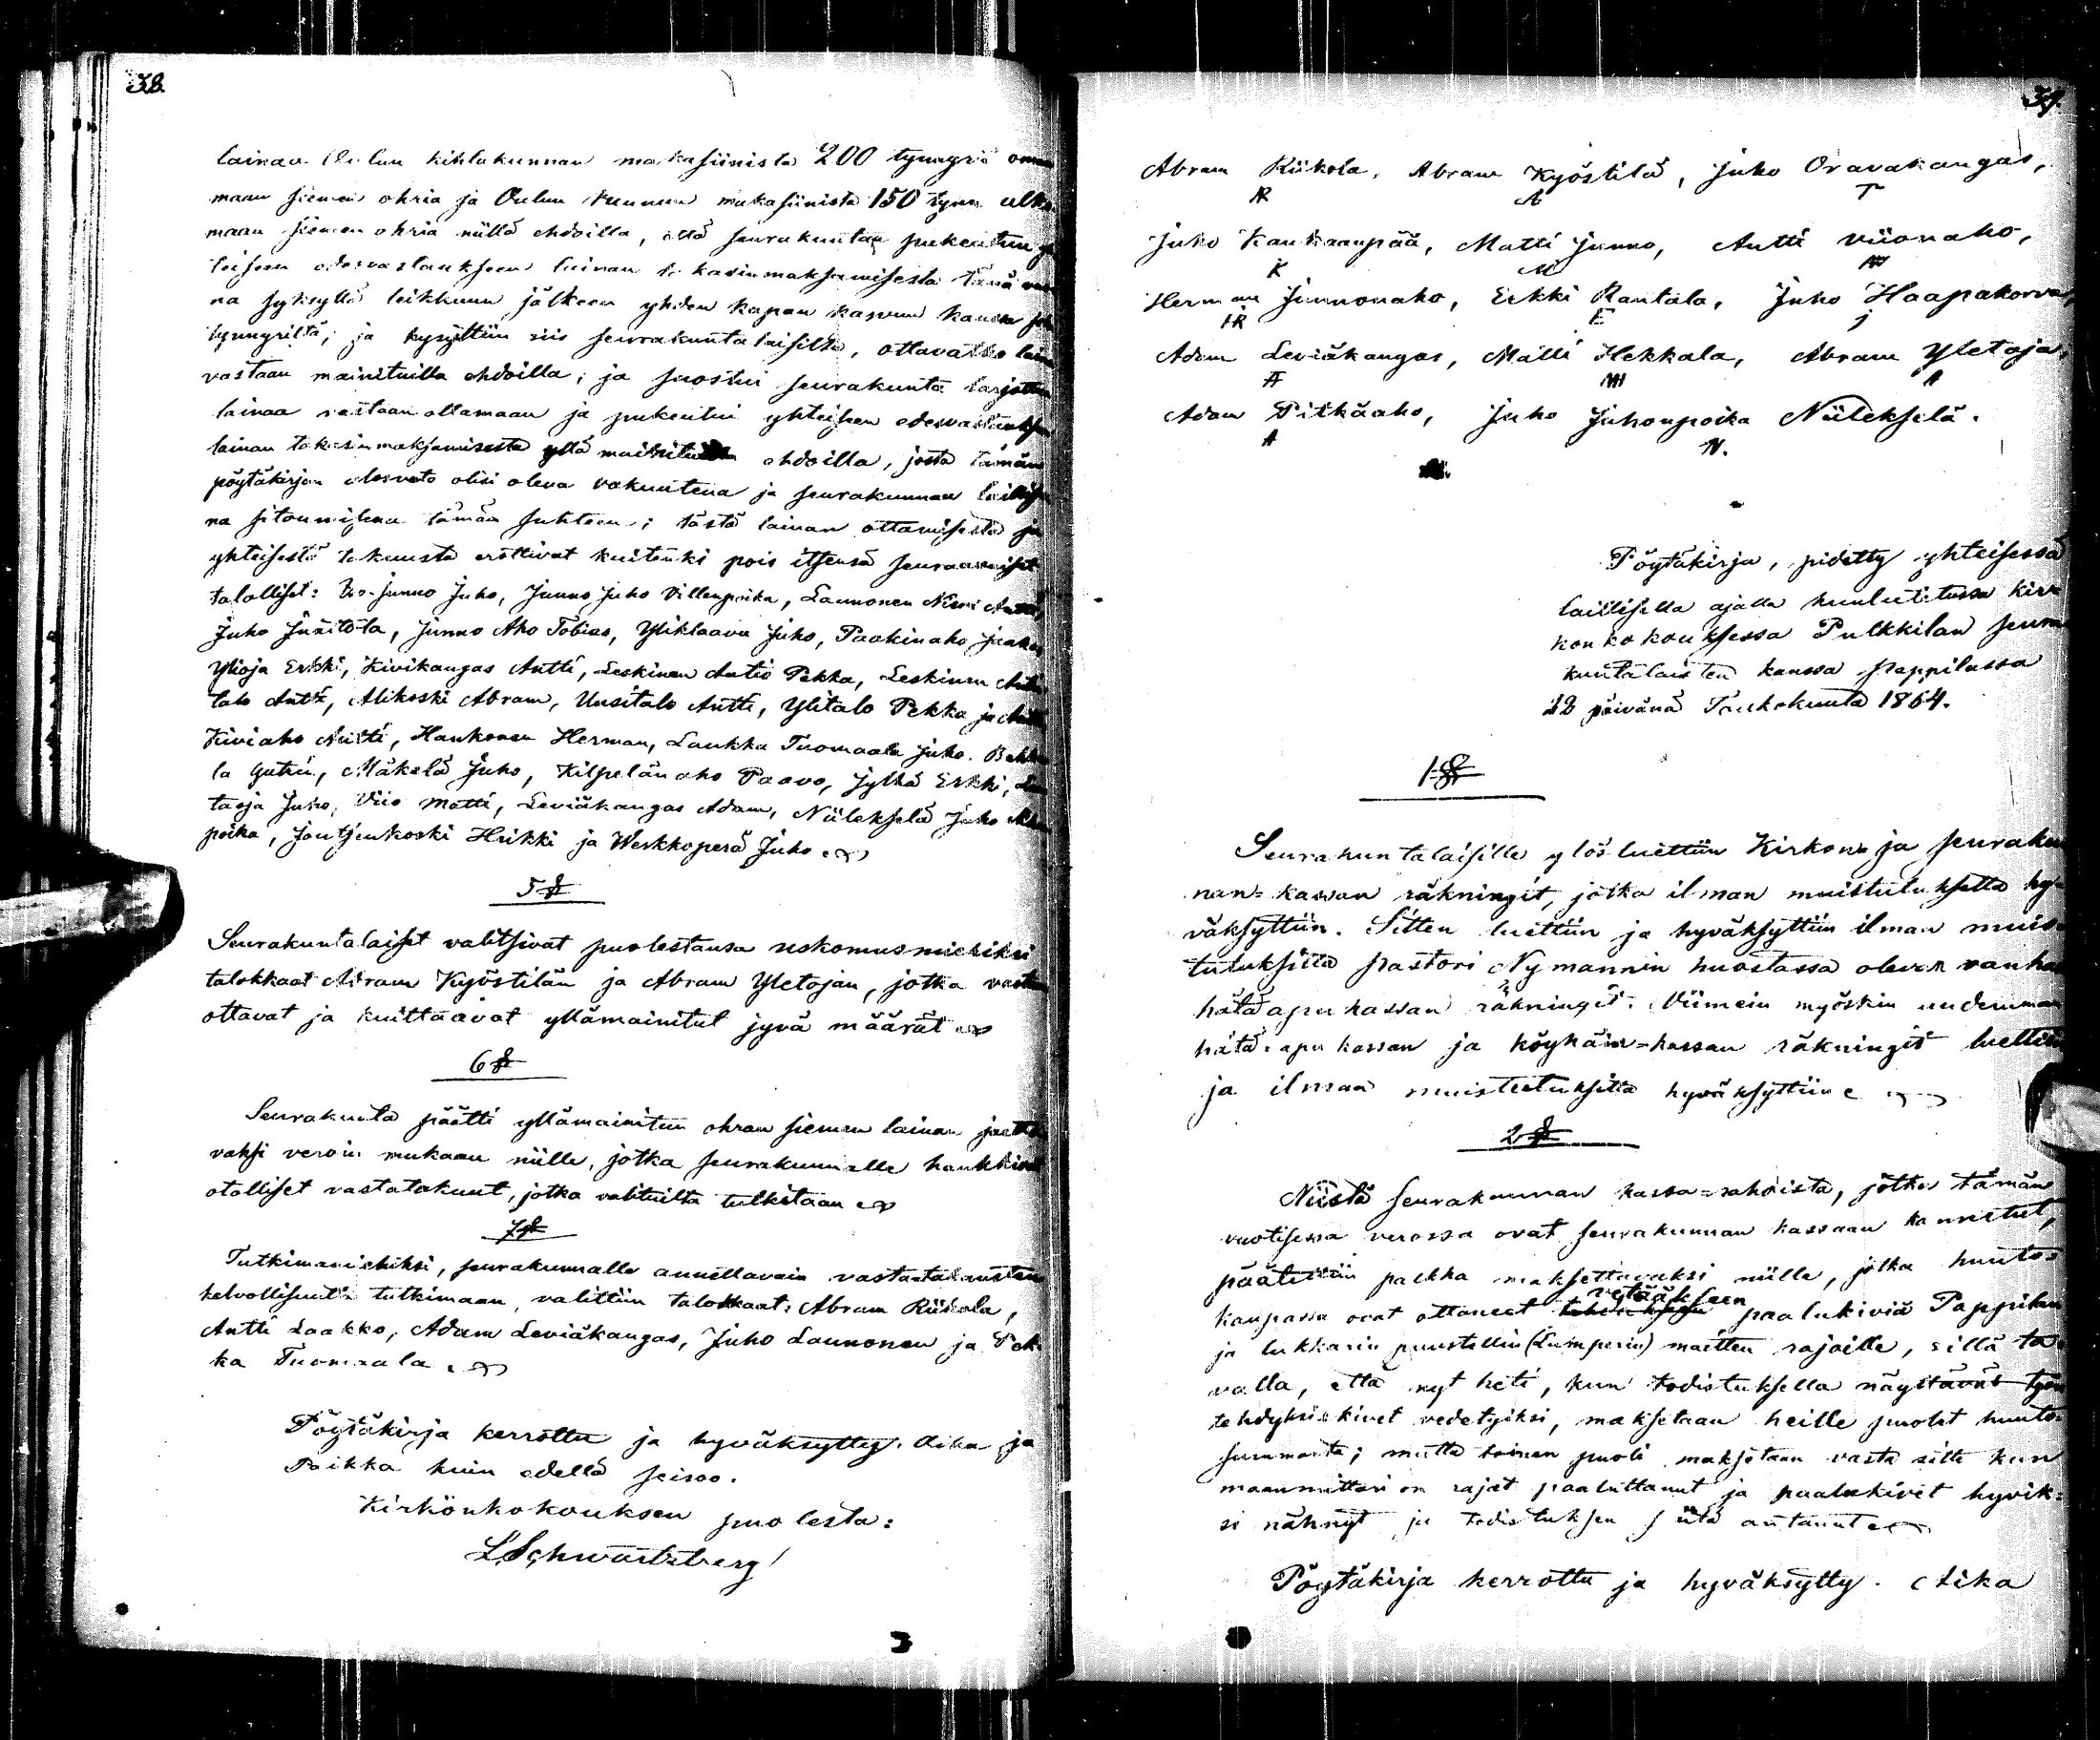 38.
lainan Oulun kihlakunnan makasiinista 200 tynnyriä oman
maan siemen ohria ja Oulun kunnan makasiinista 150 tynn. ulko
maan siemen ohria niillä ehdoilla, että seurakuntan pukeutuu y
teiseen edesvastaukseen lainan takasinmaksamisesta tänä vuon
na syksyllä leikkuun jälkeen yhden kapan kasvun kanssa
tynnyriltä; ja kysyttiin siis seurakuntalaisilta, ottavatko lain
vastaan mainituilla ehdoilla; ja suostui seurakunta tarjottua
lainaa vastaan ottamaan ja pukeutui yhteiseen edesvastaukseen
lainan takasin maksamisesta yllä mainituilla ehdoilla, josta tämän
pöytäkirjan olisi oleva vakuutena ja seurakunnan laillise
na sitoumisena tämän suhteen; tästä lainan ottamisesta ja
yhteisestä takuusta erottivat kuitenki pois itsensä seuraavaiset
talolliset: Iso-Junno Juho, Junno Juho Villenpoika, Launonen Niini Antti,
Juho Junttola, Junno Aho Tobias, Yliklaavu Juho, Paakinaho Jaako
Ylioja Erkki, Kivikangas Antti, Leskinen Antti Pekka, Leskinen Antti
talo Antti, Alikoski Abram, Uusitalo Antti, Ylitalo Pekka ja Antti
Kiviaho Antti, Hankonen Herman, Laukka Tuomaala Juho. Bekka
la Gutin, Mäkelä Juho, Kilpelänaho Paavo, Jylhä Erkki,
taoja Juho, Viio Matti, Leviäkangas Adam, Niilekselä Juho
poika, Joutsenkoski Heikki ja Werkkoperä Juho
5 §
Seurakuntalaiset valitsivat puolestansa uskomusmiehiksi
talokkaat Abram Kyöstilän ja Abram Yletojan, jotka vastaan
ottavat ja kuittaavat yllämainitut jyvä määrät
6 §
Seurakunta päätti yllämainitun ohran siemen lainan jaetta
vaksi veroin mukaan niille, jotka seurakunnalle hankkivat
otolliset vastatakuut, jotka valituilta tutkitaan
7 §
Tutkimamiehiksi, seurakunnalle annettavain vastaatakausten
kelvollisuutta tutkimaan, valittiin talokkaat: Abram Riikola,
Antti Laakko, Adam Leviäkangas, Juho Launonen ja Pek-
ka Tuomaala
Pöytäkirja kerrottu ja hyväksytty. Aika ja
Paikka kuin edellä seisoo.
Kirkonkokouksen puolesta:
L Schwartzberg
39.
Abram Riikola, Abram Kyöstilä, Juho Oravakangas,
R A T
Juho Kaukaanpää, Matti Junno, Antti Viionaho,
K M
Herman Junnonaho, Erkki Rantala, Juho Haapakorva,
HR E J
Adam Leviäkangas, Matti Hekkala, Abram Yletoja,
A MH A
Adam Pitkäaho, Juho Juhonpoika Niilekselä.
A N.
Pöytäkirja, pidetty yhteisessä
laillisella ajalla kuulutetussa kir-
konkokouksessa Pulkkilan seura-
kuntalaisten kanssa pappilassa
22 päivänä Toukokuuta 1864.
1 §
Seurakuntalaisille ylösluettiin Kirkon- ja seurakun
nan-kassan räkningit, jotka ilman muistutuksetta hy-
väksyttiin. Sitten luettiin ja hyväksyttiin ilman muis-
tutuksitta pastori Nymannin huostassa olevan vanhan
hätäapukassan räkningit. Viimein myöskin uudemman
hätä-apu kassan ja köyhäin-kassan räkningit luettiin
ja ilman muistutuksitta hyväksyttiin
2 §
Niistä seurakunnan kassa-rahoista, jotka tämän
vuotisessa verossa ovat seurakunnan kassaan kannetut,
päätettiin palkka maksettavaksi niille, jotka huuto-
kaupassa ovat ottaneet vetääkseen paalukiviä Pappilan
ja lukkarin puustellin (Lumperin) maitten rajoille, sillä ta-
valla, että nyt heti, kun todistuksella näyttävät työn
tehdyksi kivet vedetyiksi, maksetaan heille puolet huuto-
summasta; mutta toinen puoli maksetaan vasta sitte kun
maanmittari on rajat paaluttanut ja paalukivet hyvik-
si nähnyt ja todistuksen siitä antanut
Pöytäkirja kerrottu ja hyväksytty. Aika